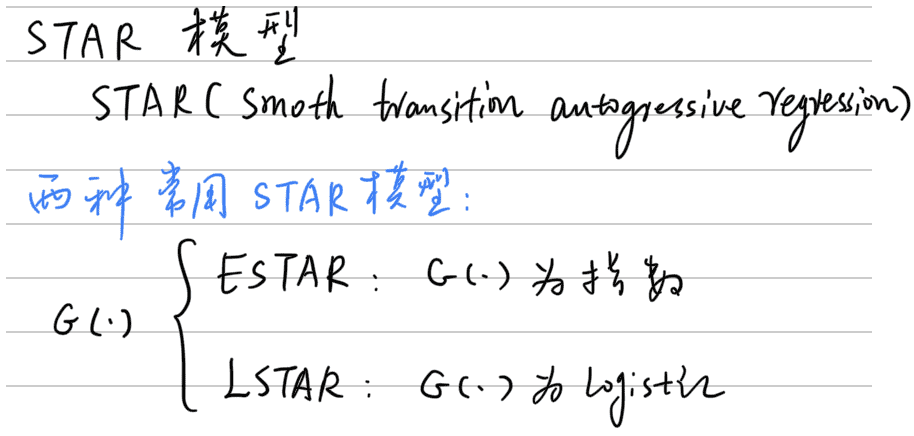 STAR 模型
STAR ( smoth transition autogressive regression)
两种常用 STAR 模型:
G(·) { ESTAR: G(·) 为指数
LSTAR: G(·) 为 Logistic